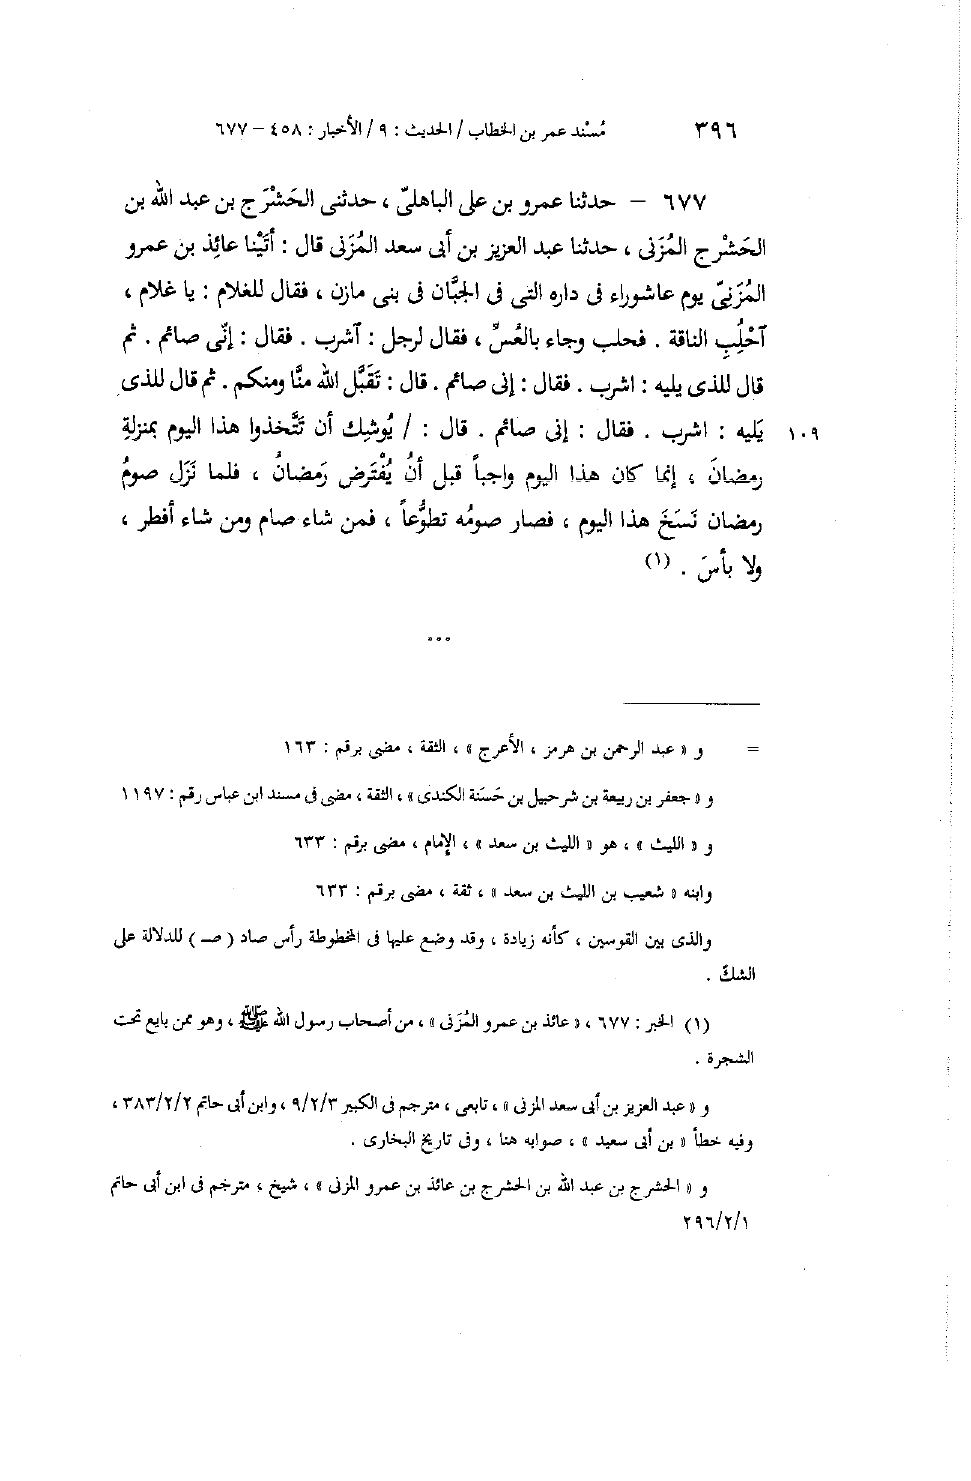 ٣٩٦ مُسْند عمر بن الخطاب / الحديث : ٩ / الأخبار : ٤٥٨ – ٦٧٧
٦٧٧ – حدثنا عمرو بن على الباهلىّ ، حدثنى الحَشْرَج بن عبد الله بن
الحَشْرج المُزَنى ، حدثنا عبد العزيز بن أبى سعد المُزَنى قال : أتَيْنا عائِذ بن عمرو
المُزَنىّ يوم عاشوراء فى داره التى فى الجَبَّان فى بنى مازن ، فقال للغلام : يا غلام ،
آحْلُبِ الناقة . فحلب وجاء بالعُسِّ ، فقال لرجل : آشرب . فقال : إنّى صائم . ثم
قال للذى يليه : اشرب . فقال : إنى صائم . قال : تَقَبَّل الله منَّا ومنكم . ثم قال للذى
يَليه : اشرب . فقال : إنى صائم . قال : / يُوشِك أن تَتَّخذوا هذا اليوم بمنزلةِ ١٠٩
رمضانَ ، إنما كان هذا اليوم واجباً قبل أنُ يُفْتَرض رَمضانُ ، فلما نَزَل صومُ
رمضان نَسَخَ هذا اليوم ، فصار صومُه تطوُّعاً ، فمن شاء صام ومن شاء أفطر ،
ولا بأسَ . (١)
٠٠٠
= و « عبد الرحمن بن هرمز ، الأعرج » ، الثقة ، مضى برقم : ١٦٣
و « جعفر بن ربيعة بن شرحبيل بن حَسَنة الكندى » ، الثقة ، مضى فى مسند ابن عباس رقم : ١١٩٧
و « الليث » ، هو « الليث بن سعد » ، الإمام ، مضى برقم : ٦٣٣
وابنه « شعيب بن الليث بن سعد » ، ثقة ، مضى برقم : ٦٣٣
والذى بين القوسين ، كأنه زيادة ، وقد وضع عليها فى المخطوطة رأس صاد ( صـ ) للدلالة على
الشكّ .
(١) الخبر : ٦٧٧ ، « عائذ بن عمرو المُزَنى » ، من أصحاب رسول الله ﷺ ، وهو ممن بايع تحت
الشجرة .
و « عبد العزيز بن أبى سعد المزنى » ، تابعى ، مترجم فى الكبير ٩/٢/٣ ، وابن أبى حاتم ٣٨٣/٢/٢ ،
وفيه خطأ « بن أبى سعيد » ، صوابه هنا ، وفى تاريخ البخارى .
و « الحشرج بن عبد الله بن الحشرج بن عائذ بن عمرو المزنى » ، شيخ ، مترجم فى ابن أبى حاتم
٢٩٦/٢/١